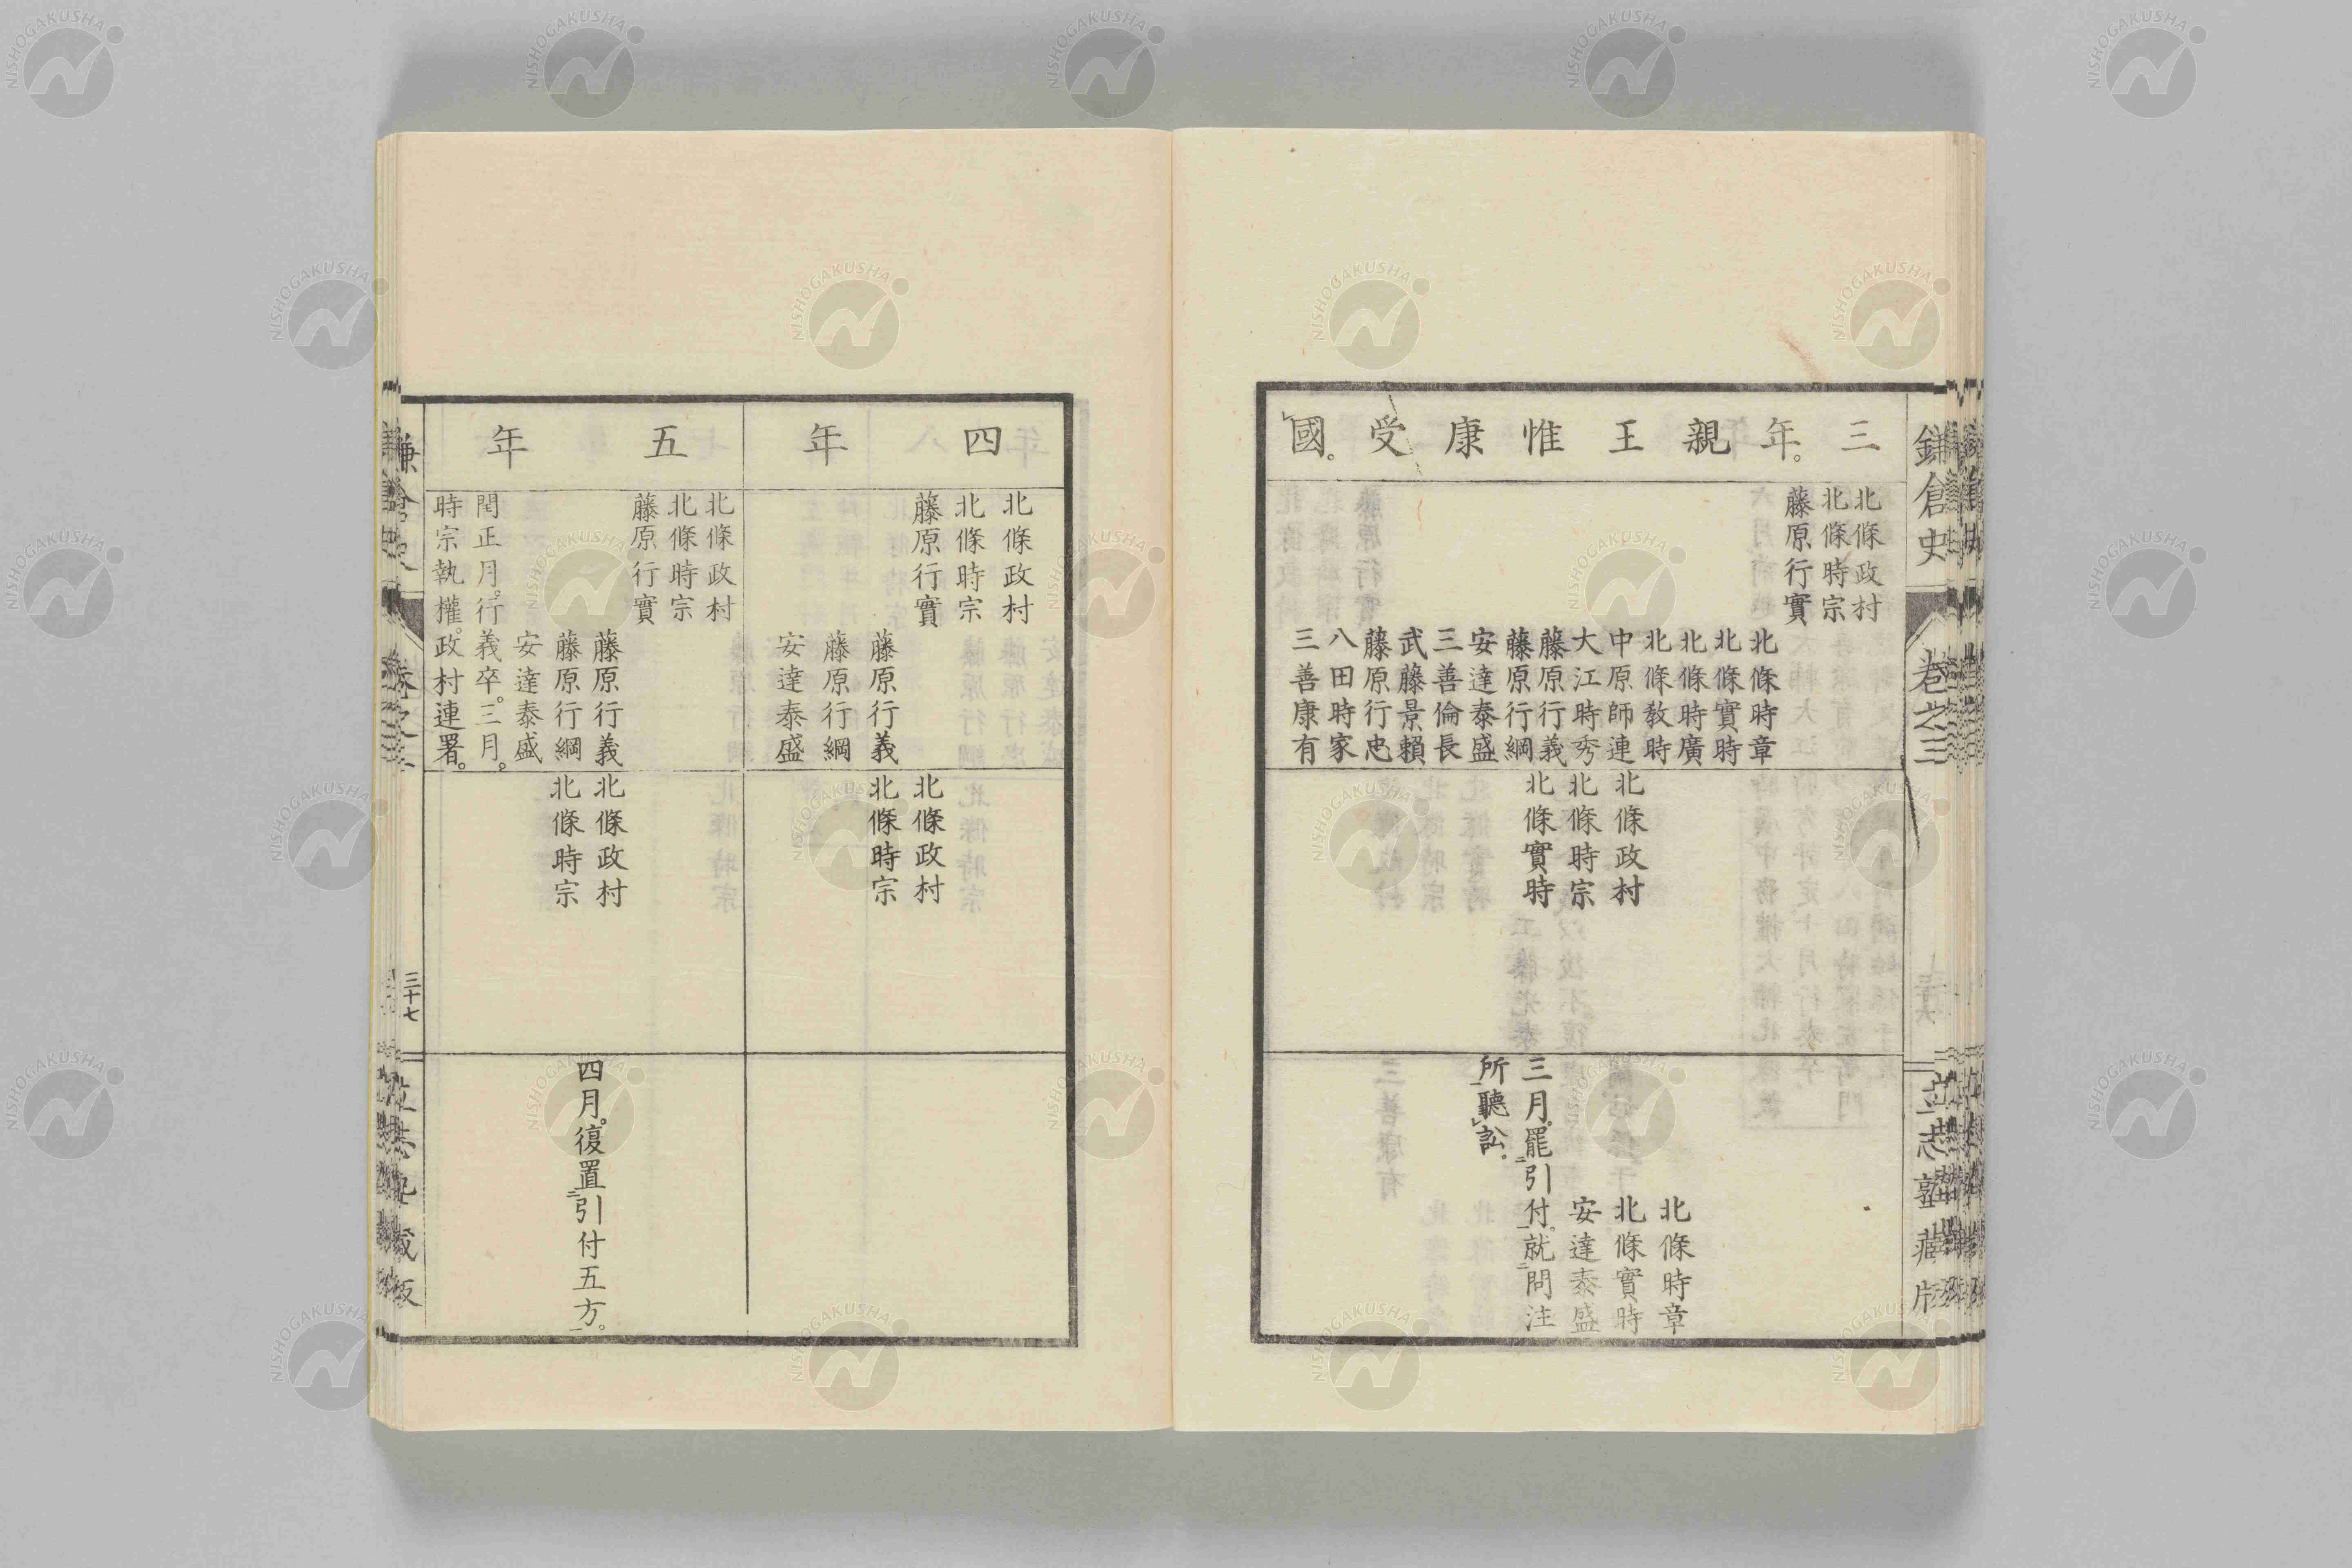 鎌倉史
卷之三
三年。親王惟康受國。
北條政村
北條時宗
藤原行實
北條時章
北條實時
北條時廣
北條教時
中原師連
大江時秀
藤原行義
藤原行綱
安達泰盛
三善倫長
武藤景賴
藤原行忠
八田時家
三善康有
北條政村
北條時宗
北條實時
北條時章
北條實時
安達泰盛
三月。罷引付。就問注
所聽訟。
四年
北條政村
北條時宗
藤原行實
藤原行義
藤原行綱
安達泰盛
北條政村
北條時宗
五年
北條政村
北條時宗
藤原行實
藤原行義
藤原行綱
安達泰盛
閏正月。行義卒。三月。
時宗執權。政村連署。
北條政村
北條時宗
四月。復置引付五方。
三十七
NISHOGAKUSHA